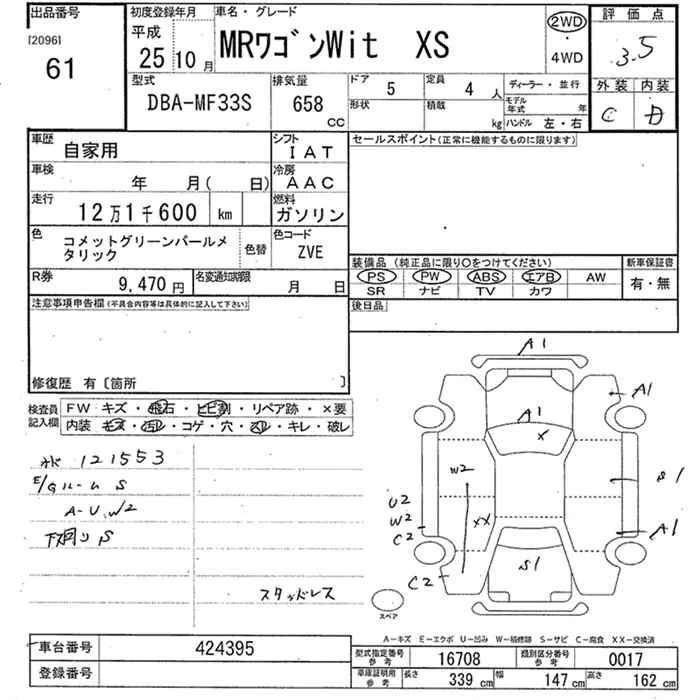 出品番号 初度登録年月 車名・グレード 2WD 評価点
[2096] 平成 MRワゴンWit XS ・ 3.5
61 25 10月 4WD 外装 内装
型式 排気量 ドア 5 定員 4人 ディーラー・並行 C D
DBA-MF33S 658 cc 形状 積載 kg モデル年式 年
ハンドル 左・右
車歴 自家用 シフト IAT セールスポイント(正常に機能するものに限ります)
車検 年 月( 日) 冷房 AAC
走行 12万1千600 km 燃料 ガソリン
色 コメットグリーンパールメタリック 色替 色コード ZVE
装備品(純正品に限り〇をつけてください) 新車保証書
PS PW ABS エアB AW 有・無
SR ナビ TV カワ
R券 9,470円 名変通知期限 月 日 後日品
注意事項申告欄(不具合内容等は具体的に記入して下さい)
修復歴 有〔箇所 〕
検査員記入欄 FW キズ・飛石・ヒビ割・リペア跡・×要
内装 キズ・汚レ・コゲ・穴・スレ・キレ・破レ
オド 121553
E/Gルーム S
A-U,W2
下廻り S
スタッドレス
A1
A1
A1
X
W2
S1
U2
W2
XX
A1
C2
S1
C2
スペア
A-キズ E-エクボ U-凹み W-補修跡 S-サビ C-腐食 XX-交換済
車台番号 424395 型式指定番号 参考 16708 類別区分番号 参考 0017
登録番号 車庫証明用 参考 長さ 339 cm 幅 147 cm 高さ 162 cm